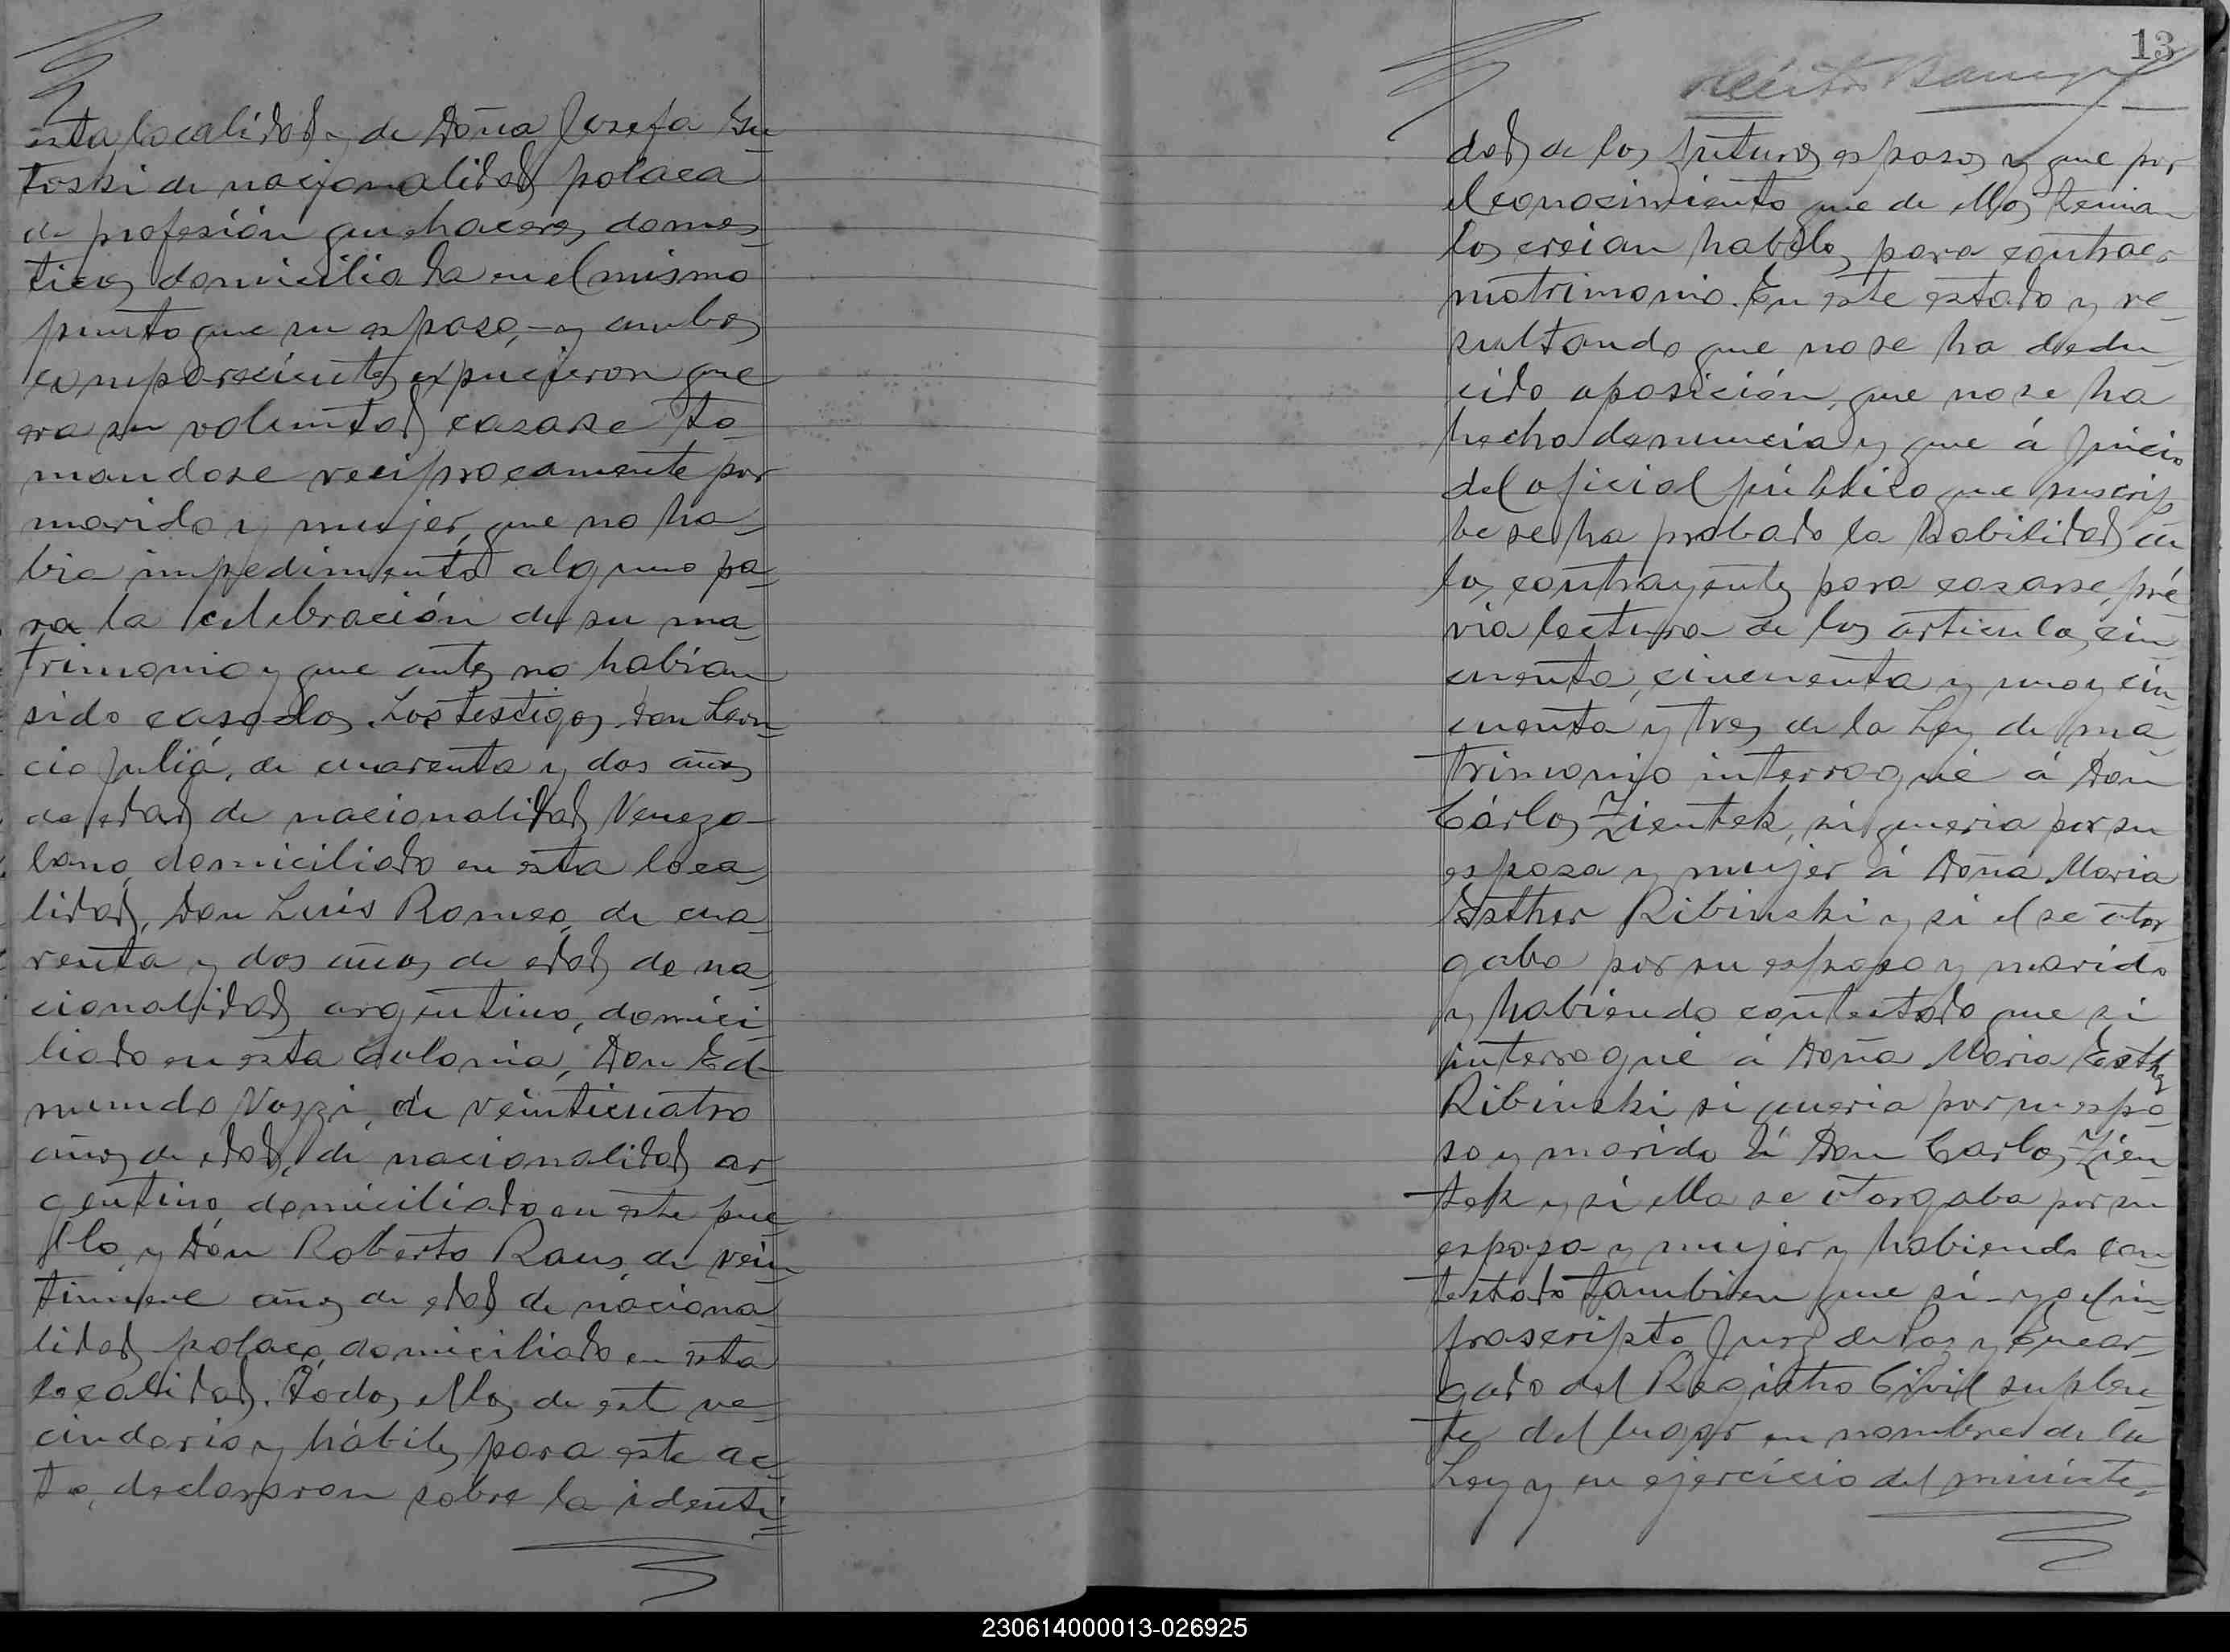 esta localidad y de Doña Josefa Gu-
toski de nacionalidad polaca
de profesión quehaceres domes-
ticos domiciliada en el mismo
punto que su esposo, - y ambos
comparecientes expucieron que
era su voluntad casarse to-
mandose reciprocamente por
marido y mujer, que no ha-
bia impedimento alguno pa-
ra la celebración de su ma-
trimonio y que antes no habian
sido casados. Los testigos Don Leon-
cio Juliá, de cuarenta y dos años
de edad de nacionalidad Venezo-
lano, domiciliado en esta loca-
lidad, Don Luis Romeo, de cua-
renta y dos años de edad de na-
cionalidad argentino, domici-
liado en esta Colonia, Don Ed-
mundo Vozzi, de veinticuatro
años de edad, de nacionalidad ar-
gentino domiciliado en este pue-
blo, y Don Roberto Raus, de vein-
tinueve años de edad de naciona-
lidad polaco, domiciliado en esta
localidad. Todos ellos de est ve-
cindario y hábiles para este ac-
to, declararon sobre la identi-
13
dad de los futuros esposos y que por
el conocimiento que de ellos tenian
los creian habiles para contraer
matrimonio. En este estado y re-
sultando que no se ha dedu-
cido oposición, que no se ha
hecho denuncia y que á juicio
del oficial público que suscri-
be se ha probado la habilidad de
los contrayentes para casarse, pré-
via lectura de los articulos cin-
cuenta, cincuenta y uno y cin-
cuenta y tres de la Ley de ma-
trimonio interrogué á Don
Cárlos Zientek, si queria por su
esposa y mujer á Doña Maria
Esther Ribinski y si el se otor-
gaba por su esposo y marido
y habiendo contestado que si
interrogué á Doña Maria Esther
Ribinski si queria por su espo-
so y marido á Don Carlos Zien-
tek y si ella se otorgaba por su
esposa y mujer y habiendo con-
testado tambien que si - yo el in-
frascripto Juez de Paz y Encar-
gado del Registro Civil suplen-
te del lugar en nombre de la
Ley y en ejercicio del ministe-
230614000013-026925